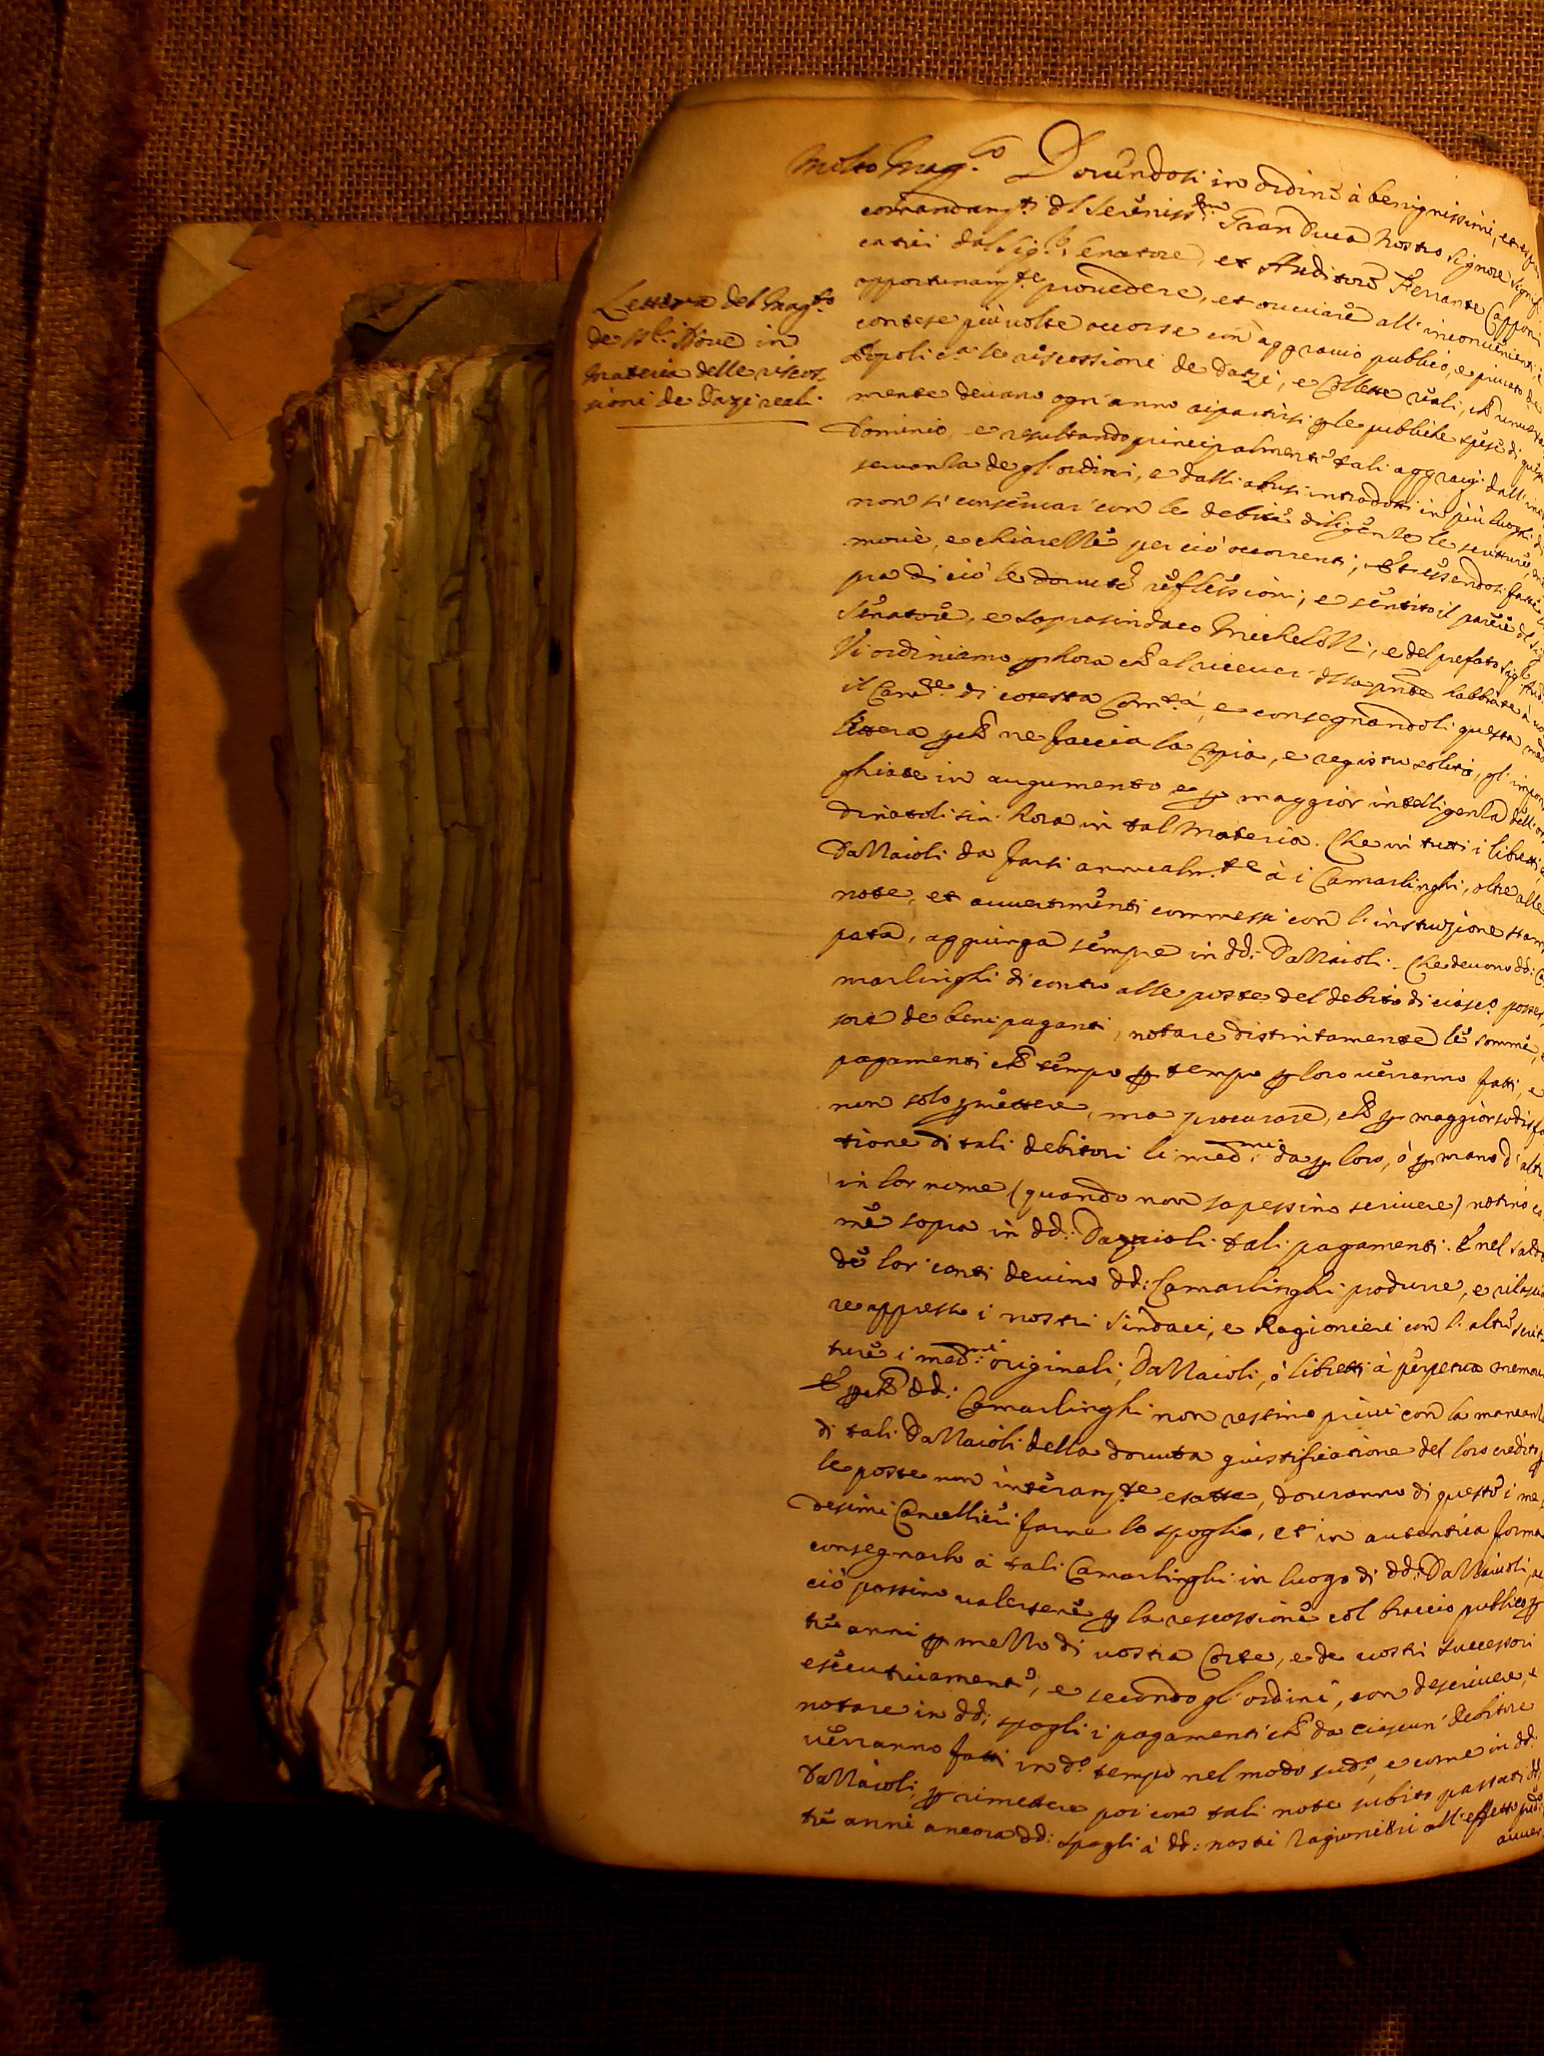 Molto Mag.co Dovendosi in ordine à benignissimi, et
comandam.ti del Sereniss.mo Gran Duca Nostro Signore signifi
catici dal Sig.r Senatore, et Auditore Ferrante Capponi
opportunam.te provedere, et ovviare all'inconvenienti, e
contese più volte occorse con aggravio publico, e privato de
Popoli c.a le riscossioni de Dazi, e Collette reali, ch'
mente devano ogn'anno repartirsi p le publiche spese di questo
Dominio, e resultando principalmente tali aggravij dall'inos
servanza de gl'ordini, e dalli abusi introdotti in più luoghi di
non si conservar con le debite diligenze le scritture,
morie, e chiarezze per ciò occorrenti; Et essendosi fatte
pra di ciò le dovute reflessioni; e sentito il parere del Sig.
Senatore, e soprasindaco Michelozzi, e del prefato Sig.r Aud.
Vi ordiniamo p hora che al ricever della pnte habbiate à voi
il Canc.re di cotesta Com.tà, e consegnandoli questa med
lettera pche ne faccia la copia, e registro solito, gl'impon
ghiate in augumento e p maggior intelligenza dell'or
dinatoli sin'hora in tal materia. Che in tutti i libretti e
Dazzaioli da farsi annualm.te à i Camarlinghi, oltre alle
note, et avvertimenti commessi con l'instruzione stam
pata, aggiunga sempre in dd: Dazzaioli. Che devono dd: Ca
marlinghi di contro alle poste del debito di ciasc.o posses
sore de beni paganti, notare distintamente le somme, e
pagamenti che tempo p tempo p loro verranno fatti, e
non solo pmettere, ma procurare, che p maggior sodisfa
tione di tali debitori li med.mi da p loro, ò p mano d'altri
in lor nome (quando non sapessino scrivere) notino co
me sopra in dd: Dazzaioli tali pagamenti. E nel saldo
de lor conti devino dd: Camarlinghi produrre, e rilascia
re appresso i nostri Sindaci, e Ragionieri con l'altre scrit
ture i med.mi originali, Dazzaioli, ò libretti à perpetua memoria
E pche dd: Camarlinghi non restino privi con la mancanza
di tali Dazzaioli della dovuta giustificatione del loro credito p
le poste non interam.te esatte, dovranno di questo i me
desimi Cancellieri farne lo spoglio, et in autentica forma
consegnarlo à tali Camarlinghi in luogo di dd: Dazzaioli, ac
ciò possino valersene p la rescossione col braccio publico p
tre anni p mezzo di vostra Corte, e de vostri successori
esecutivamente, e secondo gl'ordini, con descrivere, e
notare in dd: spogli i pagamenti che da ciascun debitore
verranno fatti in d.o tempo nel modo sud.o, e come in dd:
Dazzaioli, p rimettere poi con tali note subito passati dd:
tre anni ancora dd: spogli à dd: nostri Ragionieri all'effetto pd.o
avver
Lettera del Mag.to
de SS.ri Nove in
materia delle riscos
sioni de dazi reali.